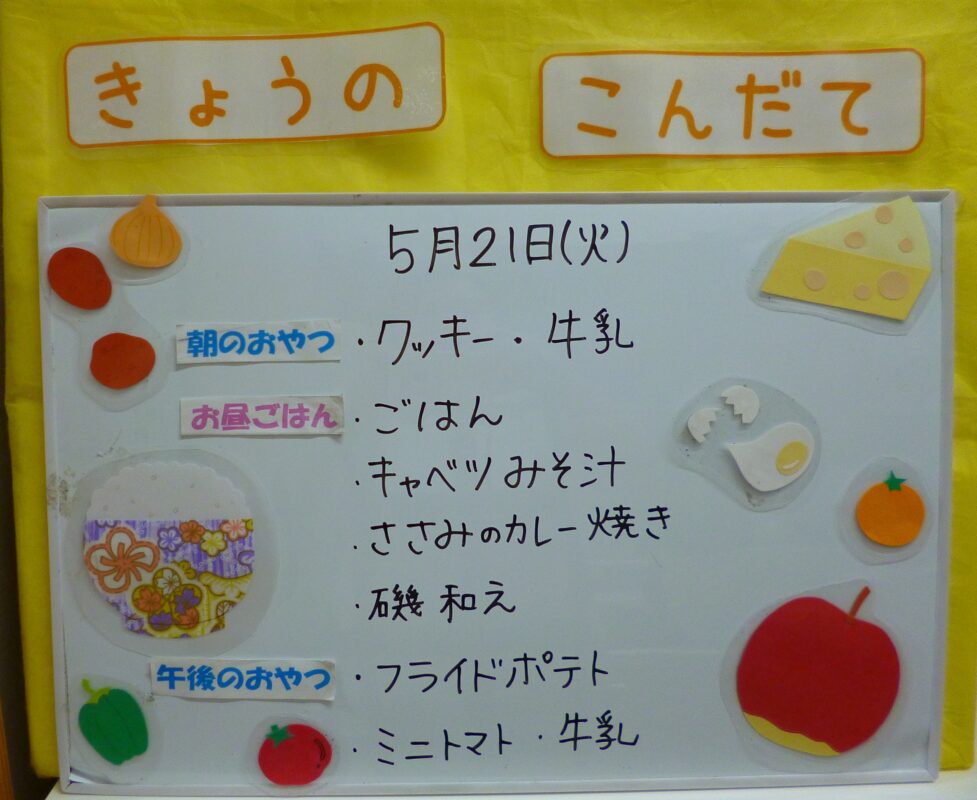 きょうの こんだて
5月21日(火)
朝のおやつ ・クッキー・牛乳
お昼ごはん ・ごはん
・キャベツみそ汁
・ささみのカレー焼き
・磯和え
午後のおやつ ・フライドポテト
・ミニトマト・牛乳